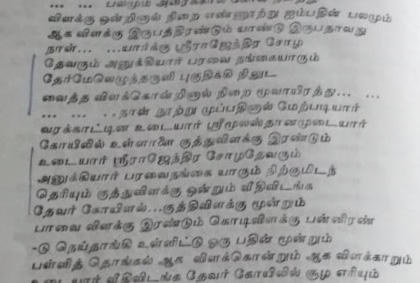 ... ... பலமும்
விளக்கு ஒன்றினால் நிறை எண்ணூற்று ஐம்பதின் பலமும்
ஆக விளக்கு இருபத்திரண்டும் யாண்டு இருபதாவது
நாள்... ...யார்க்கு ஸ்ரீராஜேந்திர சோழ
தேவரும் அனுக்கியார் பரவை நங்கையாரும்
தேர்மேலெழுந்தருளி புகுதிக்கி நிலுட
வைத்த விளக்கொன்றினால் நிறை மூவாயிரத்து... ...
... ... ..நாள் நூற்று முப்பதினால் மேற்படியார்
வரக்காட்டின உடையார் ஸ்ரீமூலஸ்தானமுடையார்
கோயிலில் உள்ளாலை குத்துவிளக்கு இரண்டும்
உடையார் ஸ்ரீராஜேந்திர சோழதேவரும்
அனுக்கியார் பரவைநங்கை யாரும் நிற்குமிடந்
தெரியும் குத்துவிளக்கு ஒன்றும் வீதிவிடங்க
தேவர் கோயிலில்...குத்திவிளக்கு மூன்றும்
பாவை விளக்கு இரண்டும் கொடிவிளக்கு பன்னிரண்
-டு நெய்தாங்கி உள்ளிட்டு ஒரு பதின் மூன்றும்
பள்ளித் தொங்கல் ஆக விளக்கொன்றும் ஆக விளக்காறும்
உடையார் வீதிவிடங்க தேவர் கோயிலில் சூழ எரியும்